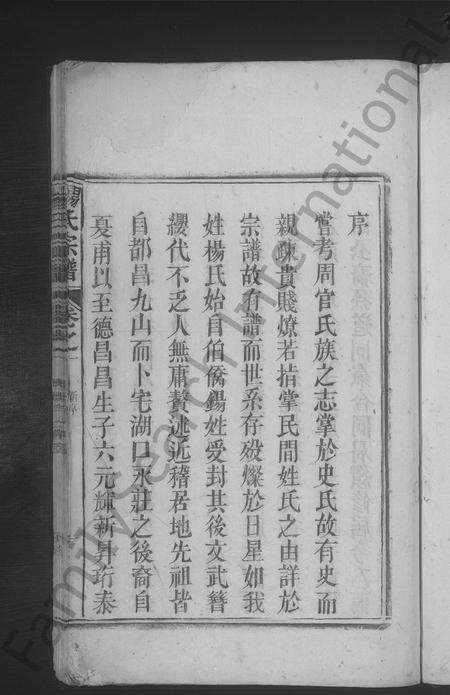 序
嘗考周官氏族之志掌於史氏故有史而
親疎貴賤燎若指掌民間姓氏之由詳於
宗譜故有譜而世系存殁燦於日星如我
姓楊氏始自伯僑錫姓受封其後文武簪
纓代不乏人無庸贅述近稽居地先祖皆
自都昌九山而卜宅湖口永莊之後裔自
夏甫以至德昌昌生子六元輝新昇珩泰
楊氏宗譜
卷之一
新序
FamilySearch International